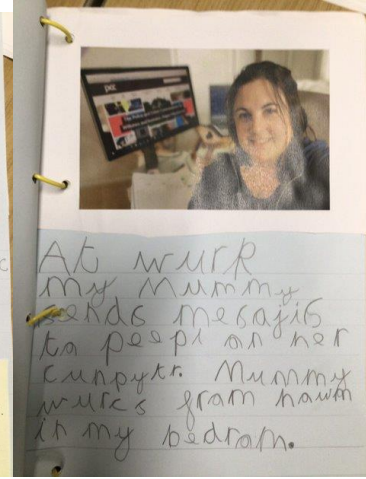 pec
At wurk
my Mummy
sends mesajis
to peepl on her
cunpytr. Mummy
wurcs fram hawm
in my bedram.